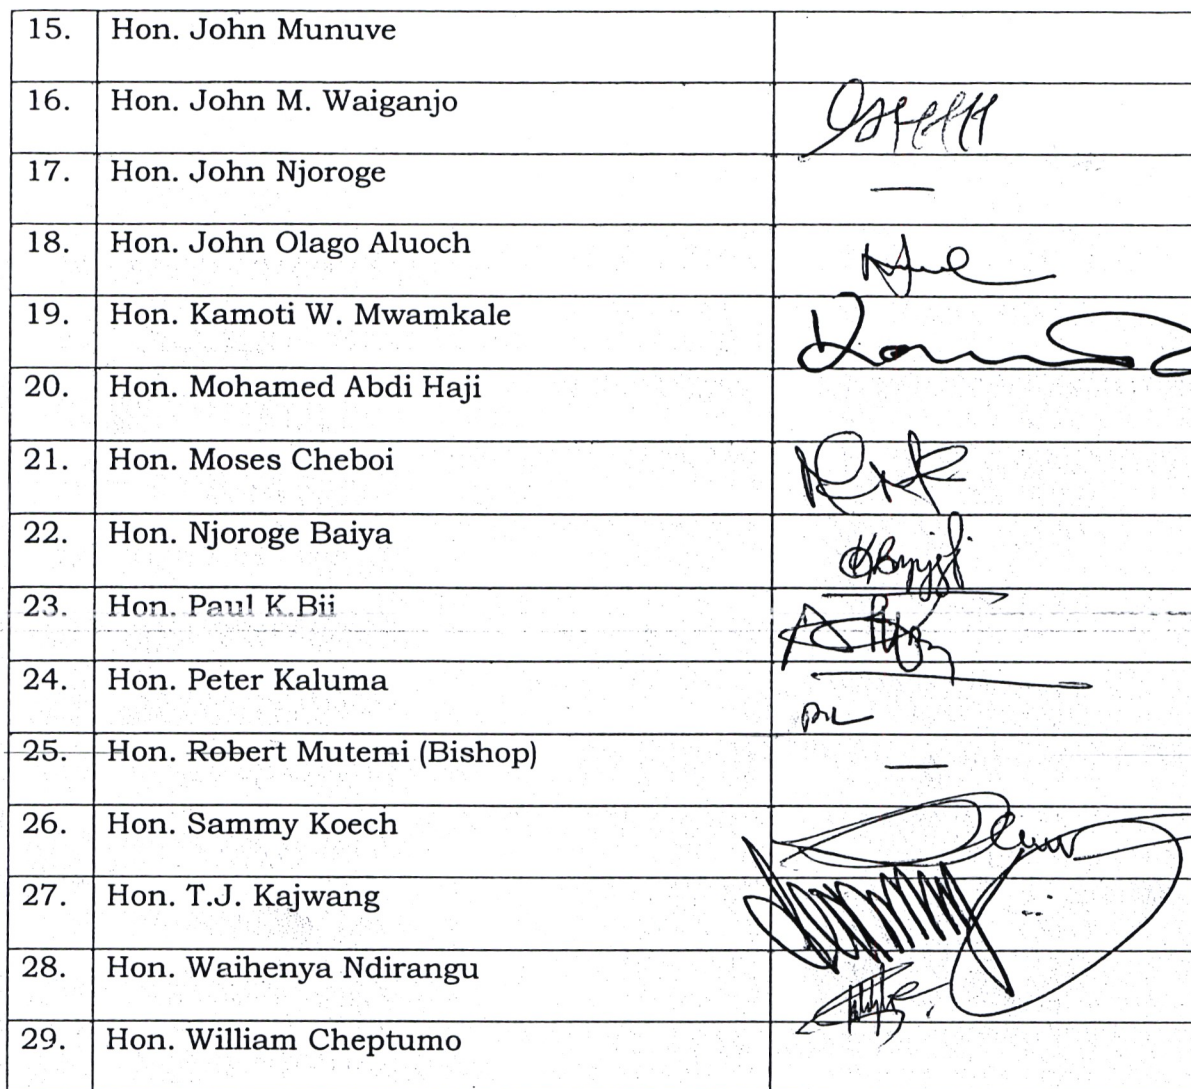 15. Hon. John Munuve
16. Hon. John M. Waiganjo
17. Hon. John Njoroge —
18. Hon. John Olago Aluoch
19. Hon. Kamoti W. Mwamkale
20. Hon. Mohamed Abdi Haji
21. Hon. Moses Cheboi
22. Hon. Njoroge Baiya
23. Hon. Paul K.Bii
24. Hon. Peter Kaluma
25. Hon. Robert Mutemi (Bishop) —
26. Hon. Sammy Koech
27. Hon. T.J. Kajwang
28. Hon. Waihenya Ndirangu
29. Hon. William Cheptumo